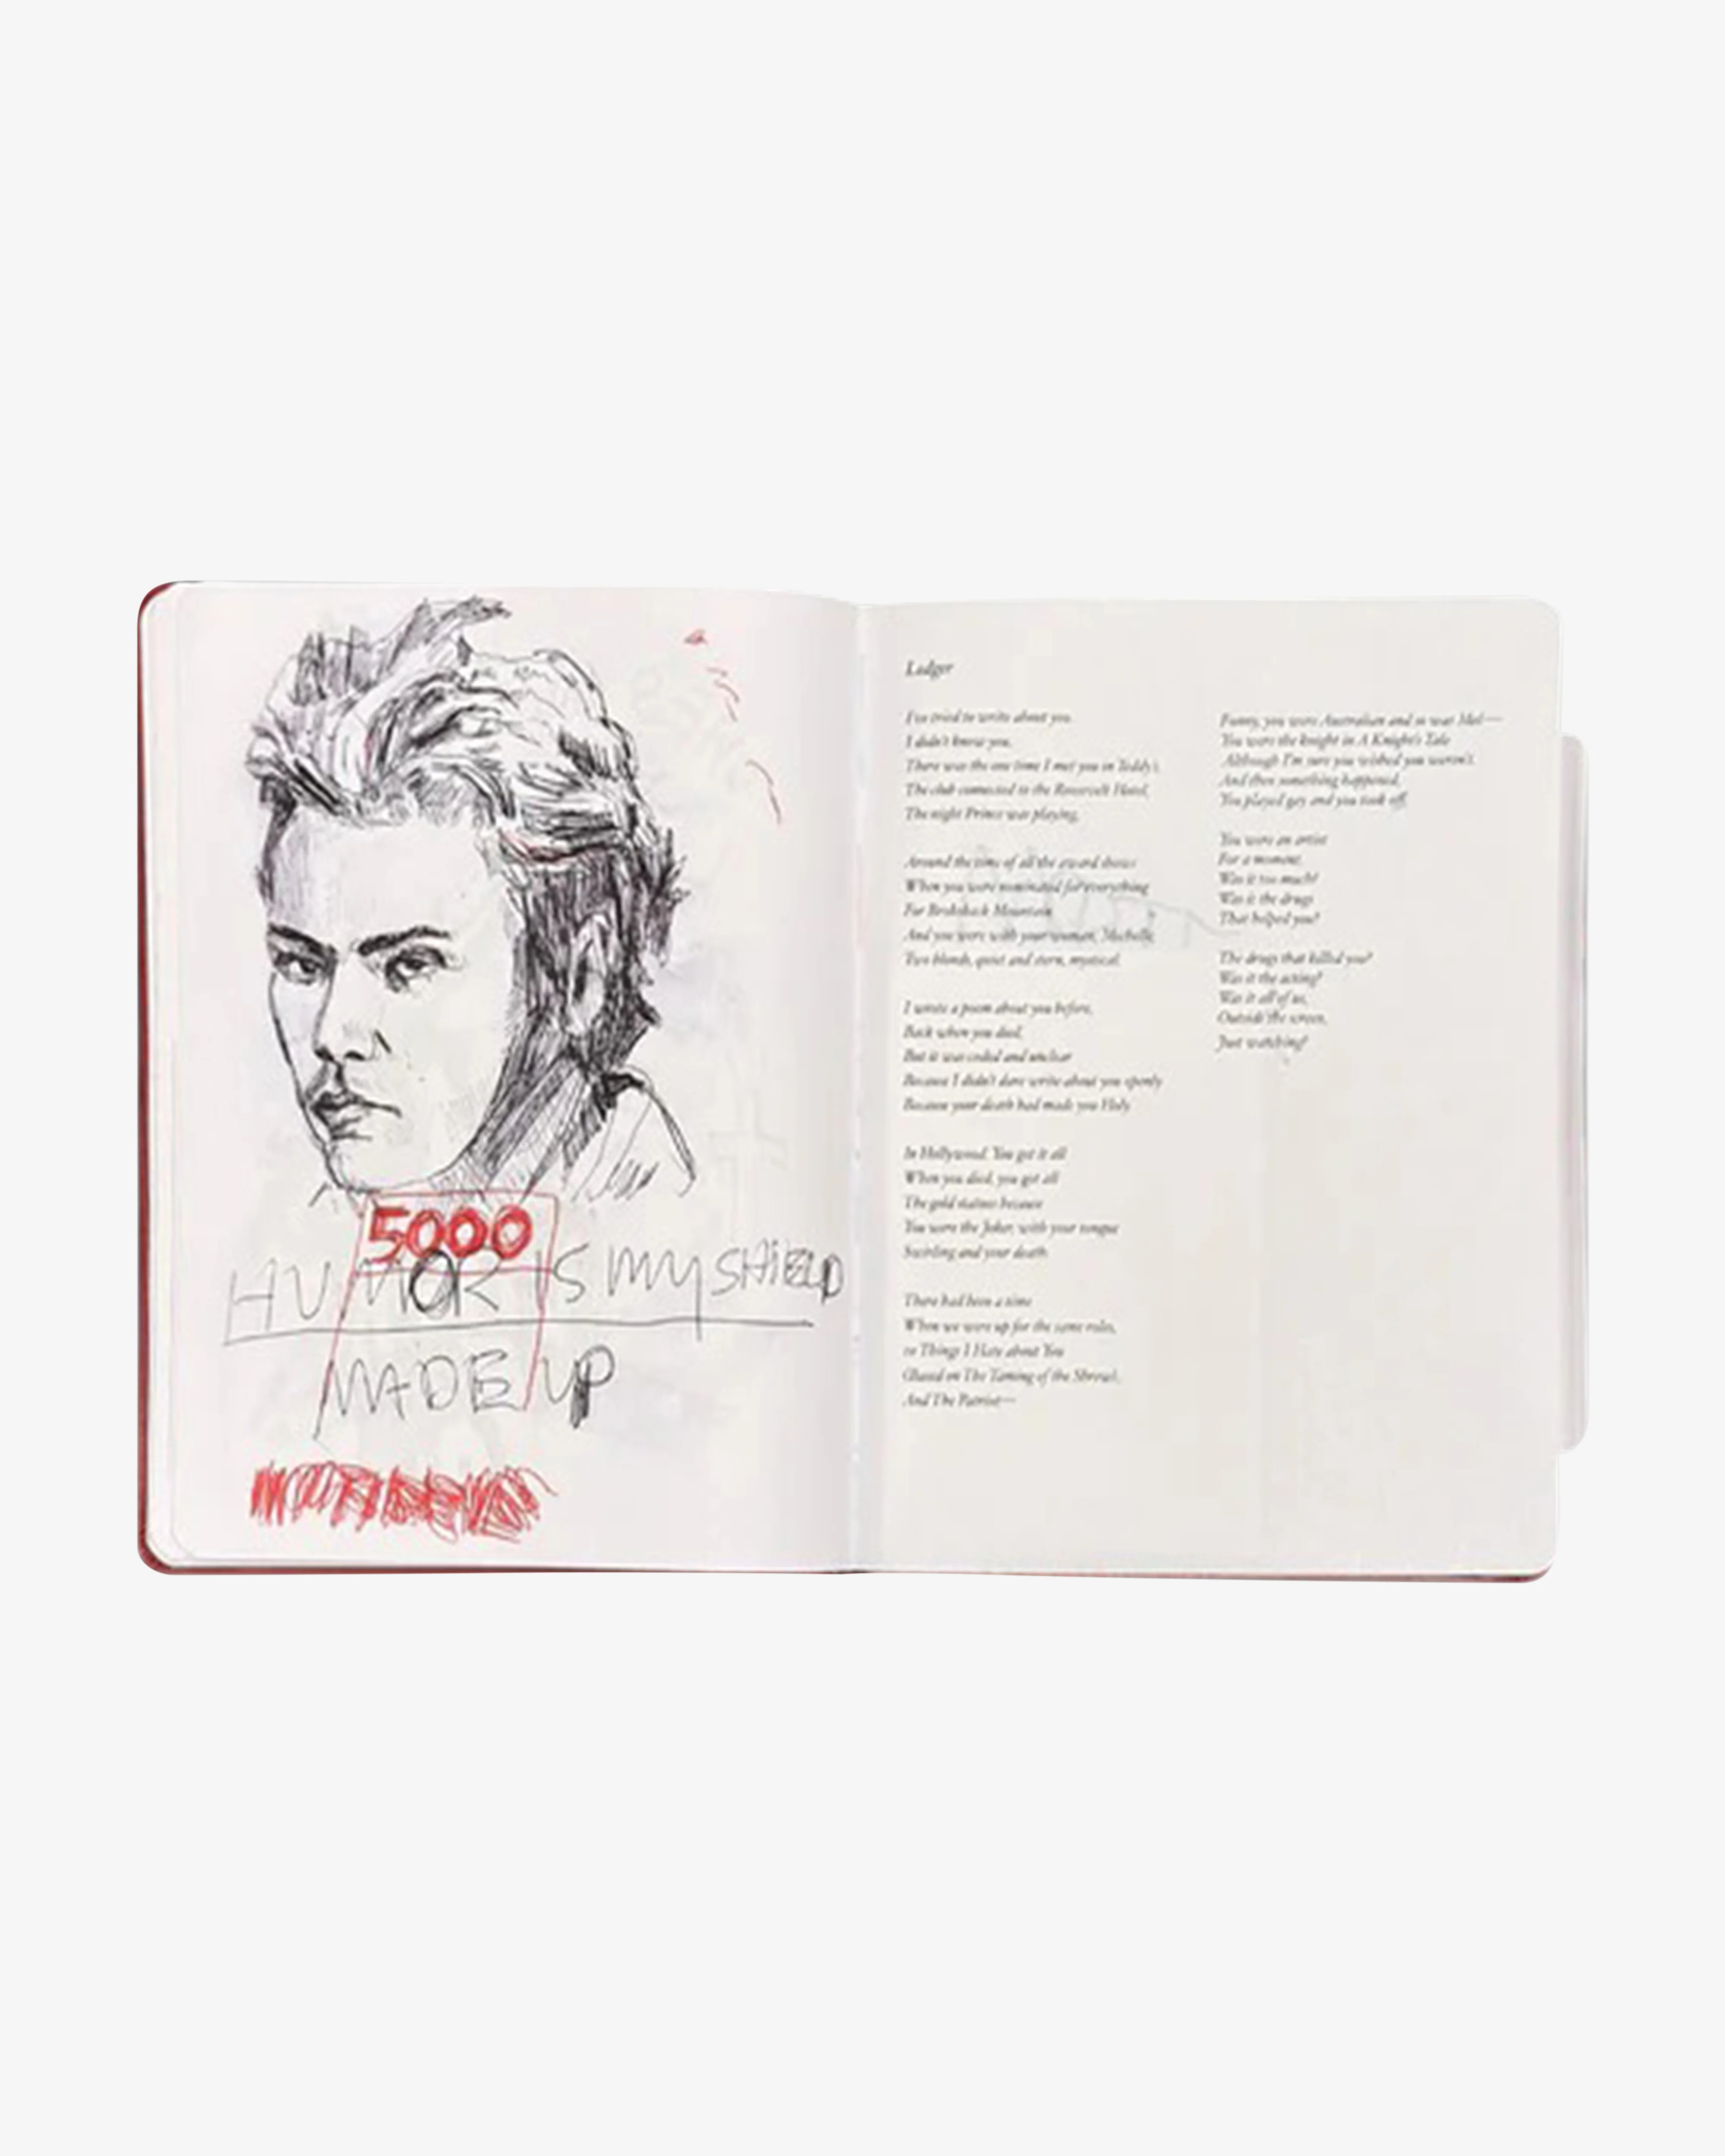 5000
HUMOR IS MY SHIELD
MADE UP
Ledger
I've tried to write about you.
I didn't know you,
There was the one time I met you in Teddy's
The club connected to the Roosevelt Hotel,
The night Prince was playing,
Around the time of all the award shows
When you were nominated for everything
For Brokeback Mountain
And you were with your woman, Michelle,
Two blonds, quiet and stern, mystical.
I wrote a poem about you before,
Back when you died,
But it was coded and unclear
Because I didn't dare write about you openly
Because your death had made you Holy
In Hollywood. You got it all
When you died, you got all
The gold statues because
You were the Joker, with your tongue
Swirling and your death
There had been a time
When we were up for the same roles,
10 Things I Hate about You
(Based on The Taming of the Shrew),
And The Patriot—
Funny, you were Australian and so was Mel—
You were the knight in A Knight's Tale
Although I'm sure you wished you weren't.
And then something happened,
You played gay and you took off.
You were an artist
For a moment.
Was it too much?
Was it the drugs
That helped you?
The drugs that killed you?
Was it the acting?
Was it all of us,
Outside the screen,
Just watching?